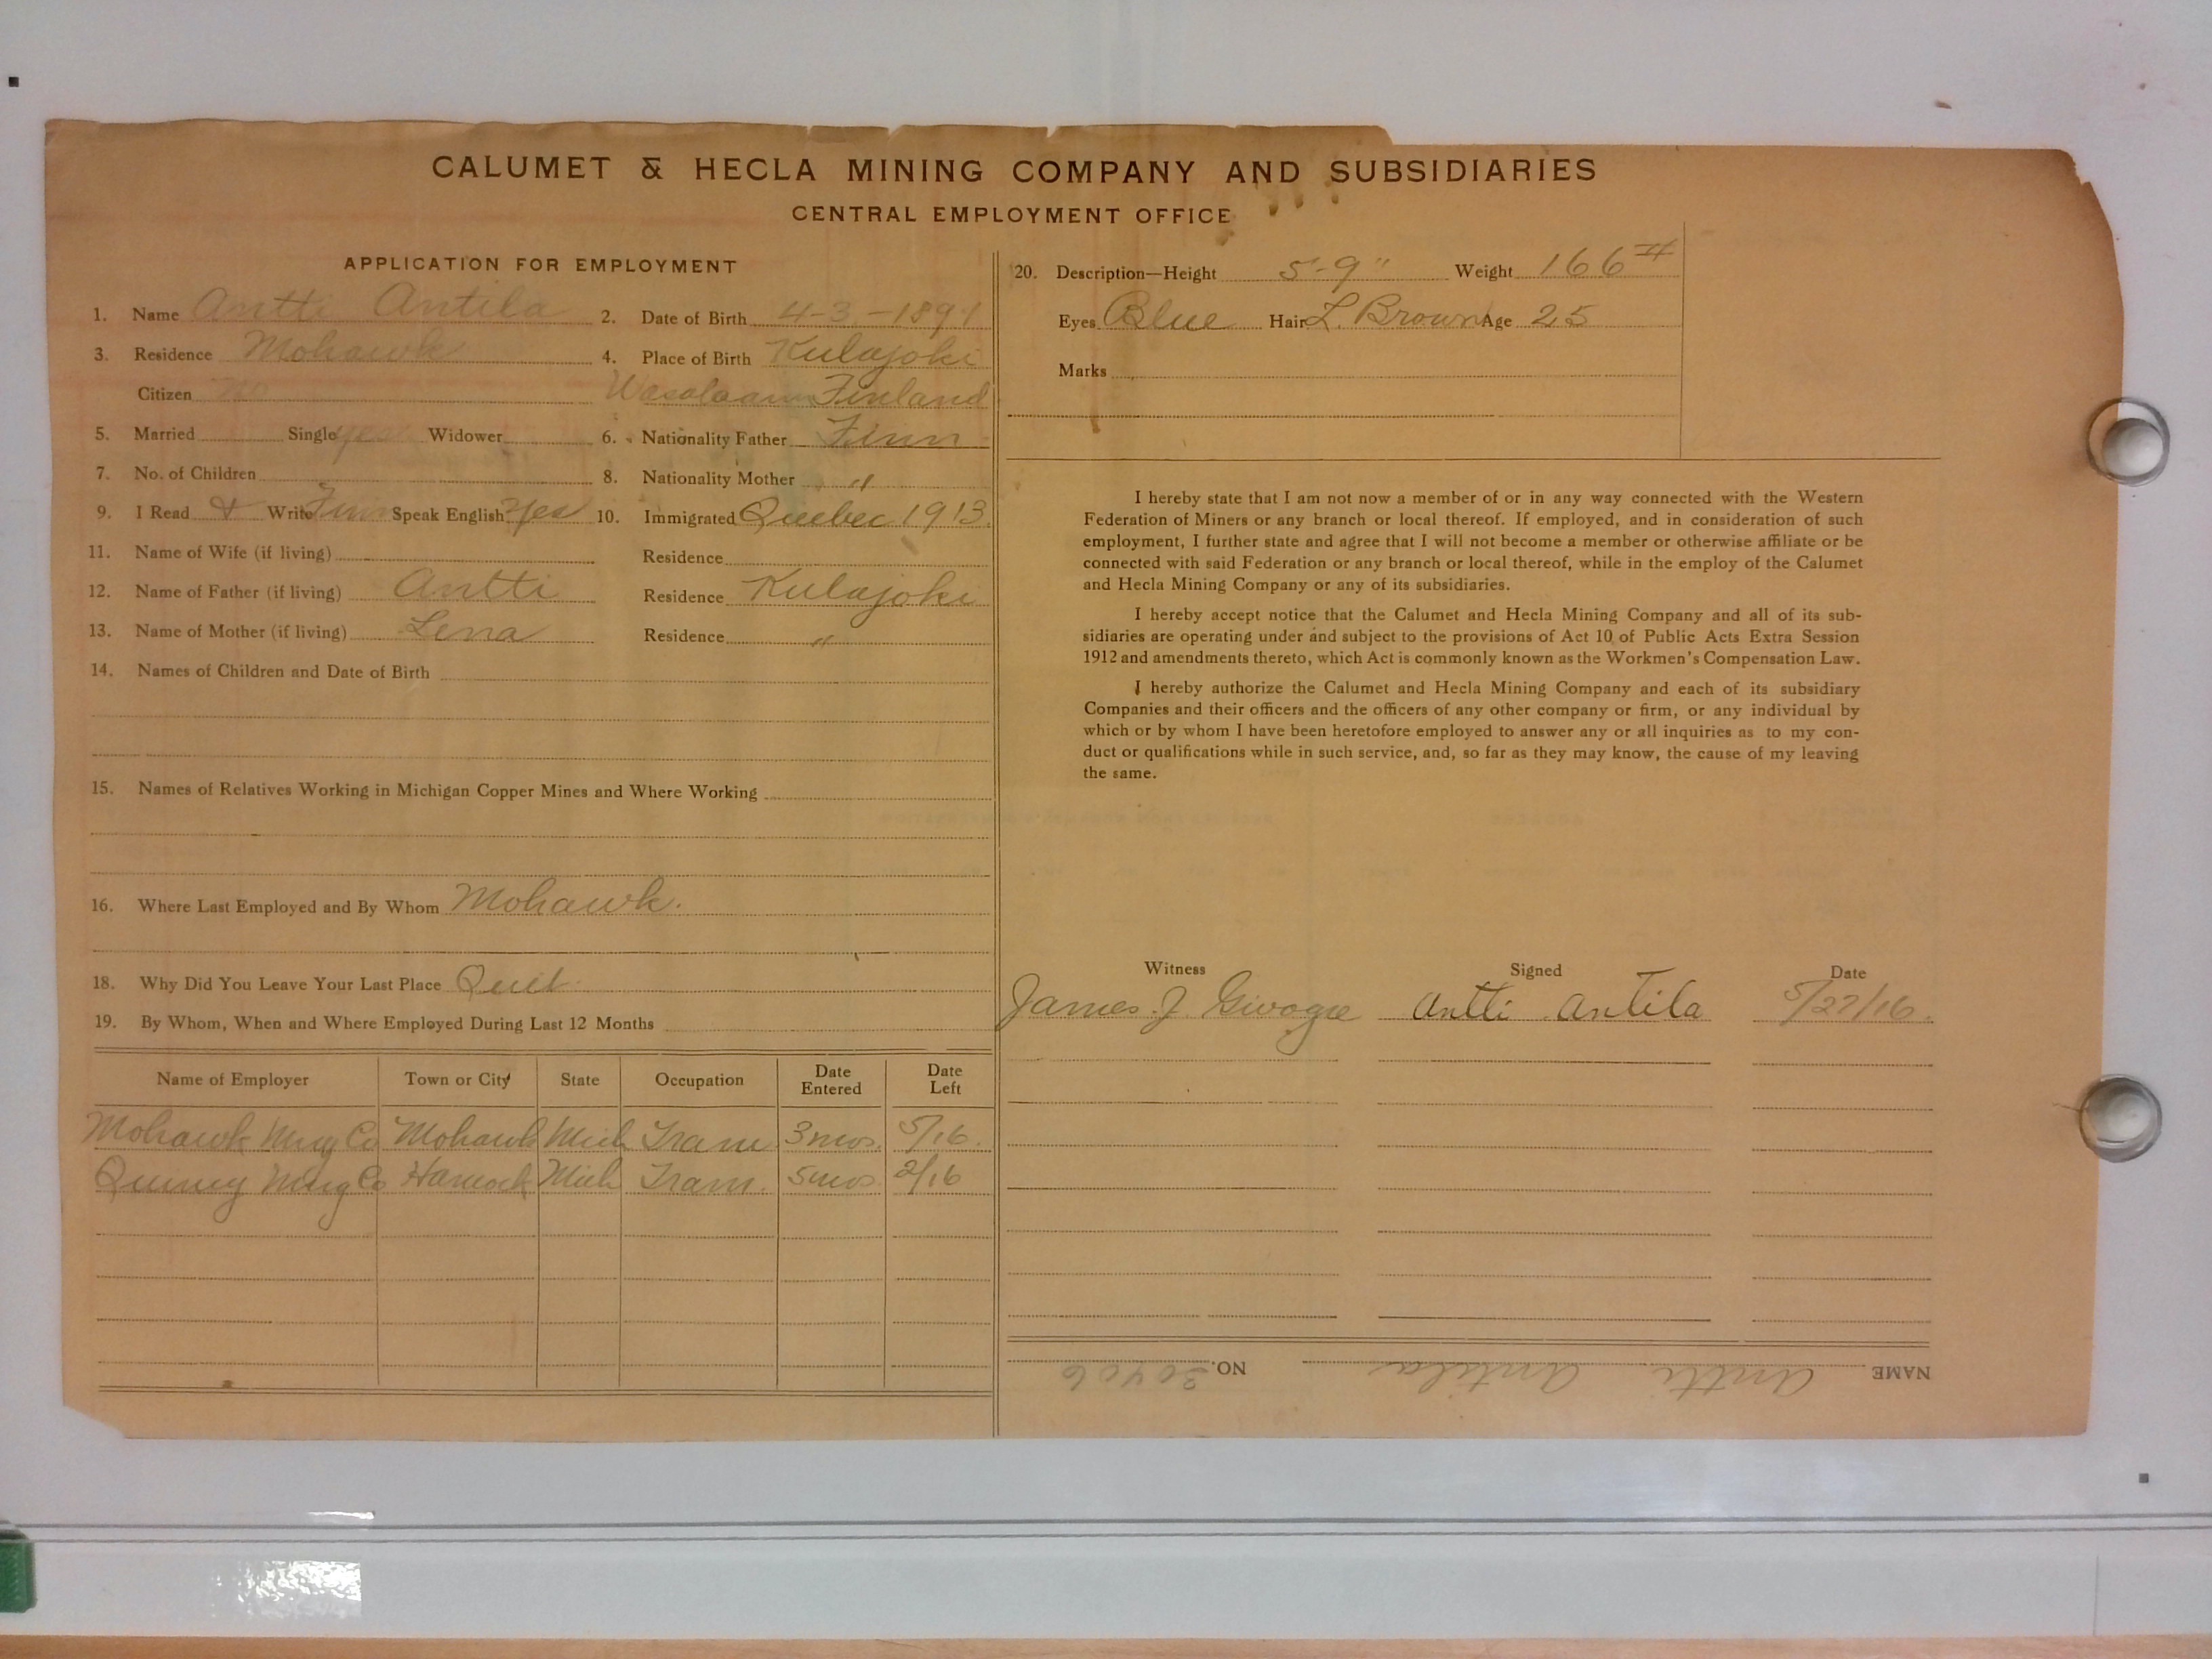 CALUMET & HECLA MINING COMPANY AND SUBSIDIARIES
CENTRAL EMPLOYMENT OFFICE
APPLICATION FOR EMPLOYMENT
1. Name Antti Antila 2. Date of Birth 4-3-1891
3. Residence Mohawk 4. Place of Birth Kulajoki
Citizen No Wasalaani Finland
5. Married Single yes Widower 6. Nationality Father Finn
7. No. of Children 8. Nationality Mother "
9. I Read & Write Finn Speak English? Yes 10. Immigrated Quebec 1913
11. Name of Wife (if living) Residence
12. Name of Father (if living) Antti Residence Kulajoki
13. Name of Mother (if living) Lena Residence "
14. Names of Children and Date of Birth
15. Names of Relatives Working in Michigan Copper Mines and Where Working
16. Where Last Employed and By Whom Mohawk.
18. Why Did You Leave Your Last Place Quit.
19. By Whom, When and Where Employed During Last 12 Months
Name of Employer Town or City State Occupation Date Entered Date Left
Mohawk Mng Co Mohawk Mich Tram 3mos. 5/16.
Quincy Mng Co Hancock Mich Tram. 5mos 2/16
20. Description—Height 5-9" Weight 166#
Eyes Blue Hair L. Brown Age 25
Marks
I hereby state that I am not now a member of or in any way connected with the Western
Federation of Miners or any branch or local thereof. If employed, and in consideration of such
employment, I further state and agree that I will not become a member or otherwise affiliate or be
connected with said Federation or any branch or local thereof, while in the employ of the Calumet
and Hecla Mining Company or any of its subsidiaries.
I hereby accept notice that the Calumet and Hecla Mining Company and all of its sub-
sidiaries are operating under and subject to the provisions of Act 10 of Public Acts Extra Session
1912 and amendments thereto, which Act is commonly known as the Workmen's Compensation Law.
I hereby authorize the Calumet and Hecla Mining Company and each of its subsidiary
Companies and their officers and the officers of any other company or firm, or any individual by
which or by whom I have been heretofore employed to answer any or all inquiries as to my con-
duct or qualifications while in such service, and, so far as they may know, the cause of my leaving
the same.
Witness Signed Date
James. J. Antti Antila 5/27/16.
NAME Antti Antila NO. 30406